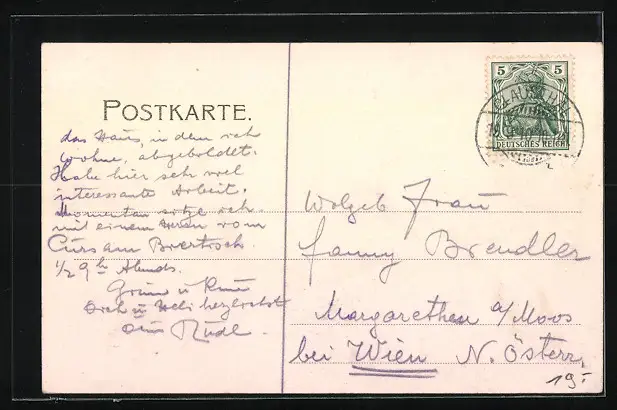 POSTKARTE.
das Haus, in dem ich
wohne, abgebildet.
Habe hier sehr viel
interessante Arbeit.
Momentan sitze ich
mit einem Herrn vom
Curs am Biertisch.
1/2 9 h Abends.
Gruss u
Dich u herzlichst
Dein Rudl.
5 5
DEUTSCHES REICH
CLAUSTHAL
Wolgeb Frau
Fanny Brendler
Margarethen a/Moos
bei Wien N. Österr.
19.-